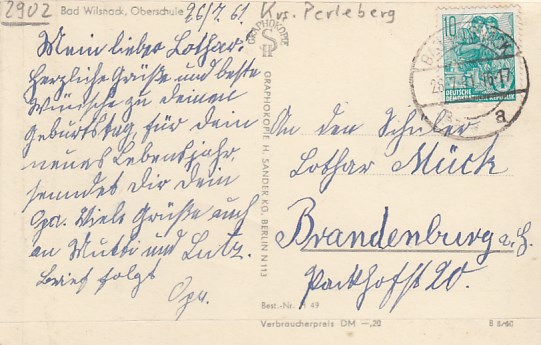 2902
Bad Wilsnack, Oberschule 26/7. 61. Krs. Perleberg
Mein lieber Lothar.
Herzliche Grüße und beste
Wünsche zu deinem
Geburtstag, für dein
neues Lebensjahr
senndet dir dein
Opa. Viele Grüße auch
an Mutti und Lutz.
Brief folgt
Opa.
GRAPHOKOPIE
GRAPHOKOPIE H. SANDER KG. BERLIN N 113
10
DEUTSCHE
DEMOKRATISCHE REPUBLIK
a
An den Schüler
Lothar Mück
Brandenburg a. H.
Packhofst 20.
Best.-Nr. H 49
Verbraucherpreis DM —,20 B 8/60